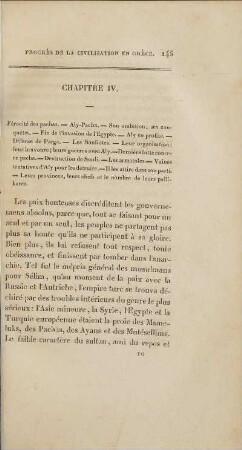 PROGRÈS DE LA CIVILISATION EN GRÈCE. 145
CHAPITRE IV.
Férocité des pachas. — Aly-Pacha. — Son ambition, ses con-
quêtes. — Fin de l'invasion de l'Égypte. — Aly en profite. —
Défense de Parga. — Les Souliotes. — Leur organisation;
leur bravoure; leurs guerres avec Aly. — Dernière lutte contre
ce pacha. — Destruction de Souli. — Les armatoles. — Vaines
tentatives d'Aly pour les détruire. — Il les attire dans son parti.
— Leurs provinces, leurs chefs et le nombre de leurs palli-
kares.
Les paix honteuses discréditent les gouverne-
mens absolus, parce que, tout se faisant pour un
seul et par un seul, les peuples ne partagent pas
plus sa honte qu'ils ne participent à sa gloire.
Bien plus, ils lui refusent tout respect, toute
obéissance, et finissent par tomber dans l'anar-
chie. Tel fut le mépris général des musulmans
pour Sélim, qu'au moment de la paix avec la
Russie et l'Autriche, l'empire turc se trouva dé-
chiré par des troubles intérieurs du genre le plus
sérieux: l'Asie mineure, la Syrie, l'Égypte et la
Turquie européenne étaient la proie des Mame-
luks, des Pachas, des Ayans et des Mutésellims.
Le faible caractère du sultan, ami du repos et
10